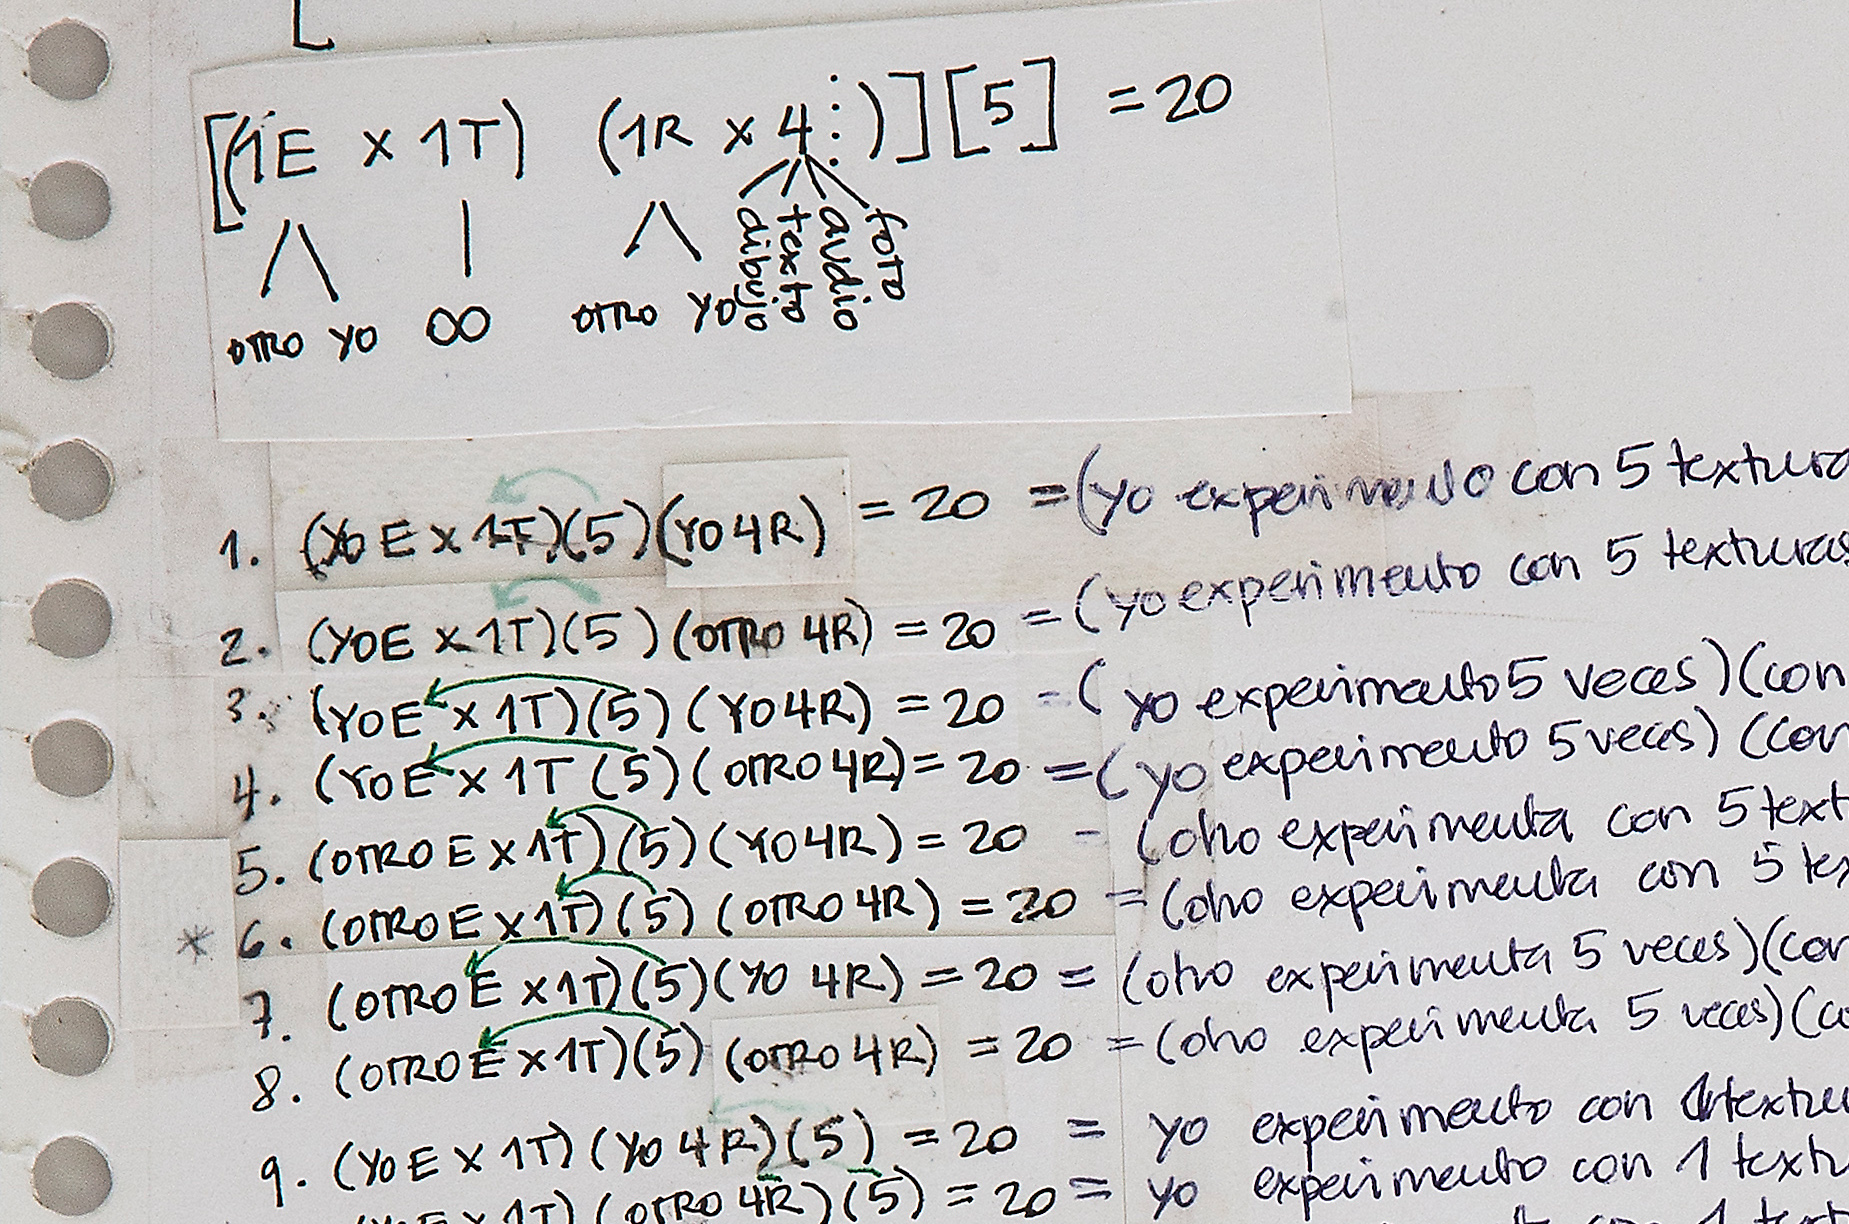 [(1E x 1T) (1R x 4⋮)][5] = 20
dibujo texto audio foto
OTRO YO ∞ OTRO YO
1. (YO E x 1T)(5)(YO 4R) = 20 = (yo experimento con 5 textura
2. (YO E x 1T)(5)(OTRO 4R) = 20 = (yo experimento con 5 texturas
3. (YO E x 1T)(5)(YO 4R) = 20 = (yo experimento 5 veces)(con
4. (YO E x 1T (5)(OTRO 4R) = 20 = (yo experimento 5 veces)(con
5. (OTRO E x 1T)(5)(YO 4R) = 20 - (otro experimenta con 5 text
* 6. (OTRO E x 1T)(5)(OTRO 4R) = 20 = (otro experimenta con 5 tex
7. (OTRO E x 1T)(5)(YO 4R) = 20 = (otro experimenta 5 veces)(con
8. (OTRO E x 1T)(5)(OTRO 4R) = 20 = (otro experimenta 5 veces)(co
9. (YO E x 1T)(YO 4R)(5) = 20 = yo experimento con 1 textu
(YO E x 1T)(OTRO 4R)(5) = 20 = yo experimento con 1 textu